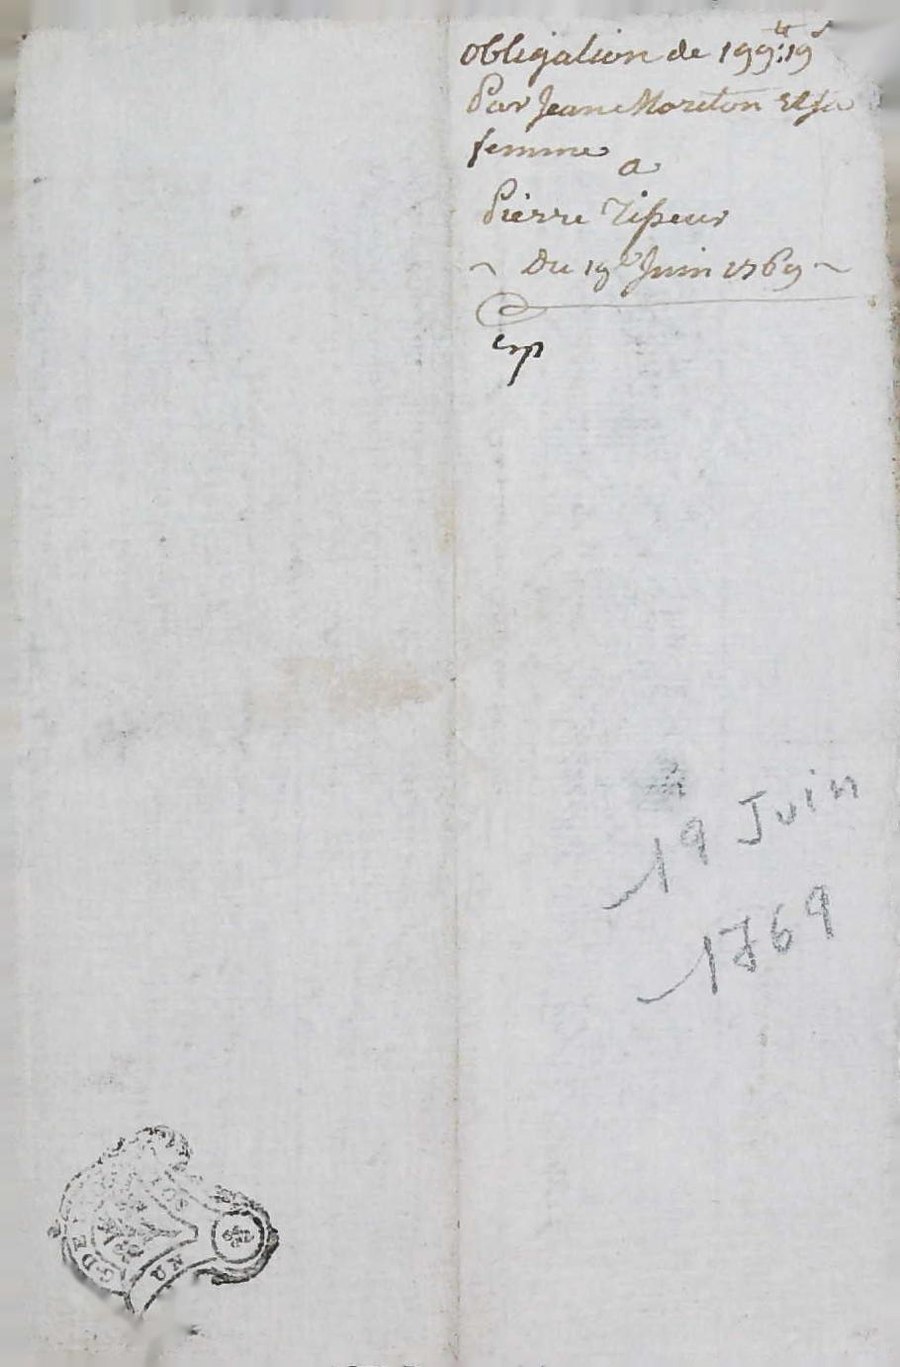 obligation de 199ᵗᵗ:19ˢ
Par Jean Moreton Et sa
femme
a
Pierre Tisseur
~ Du 19ᵉ Juin 1769 ~
Exp
19 Juin
1769
G. DE
UN
SOL